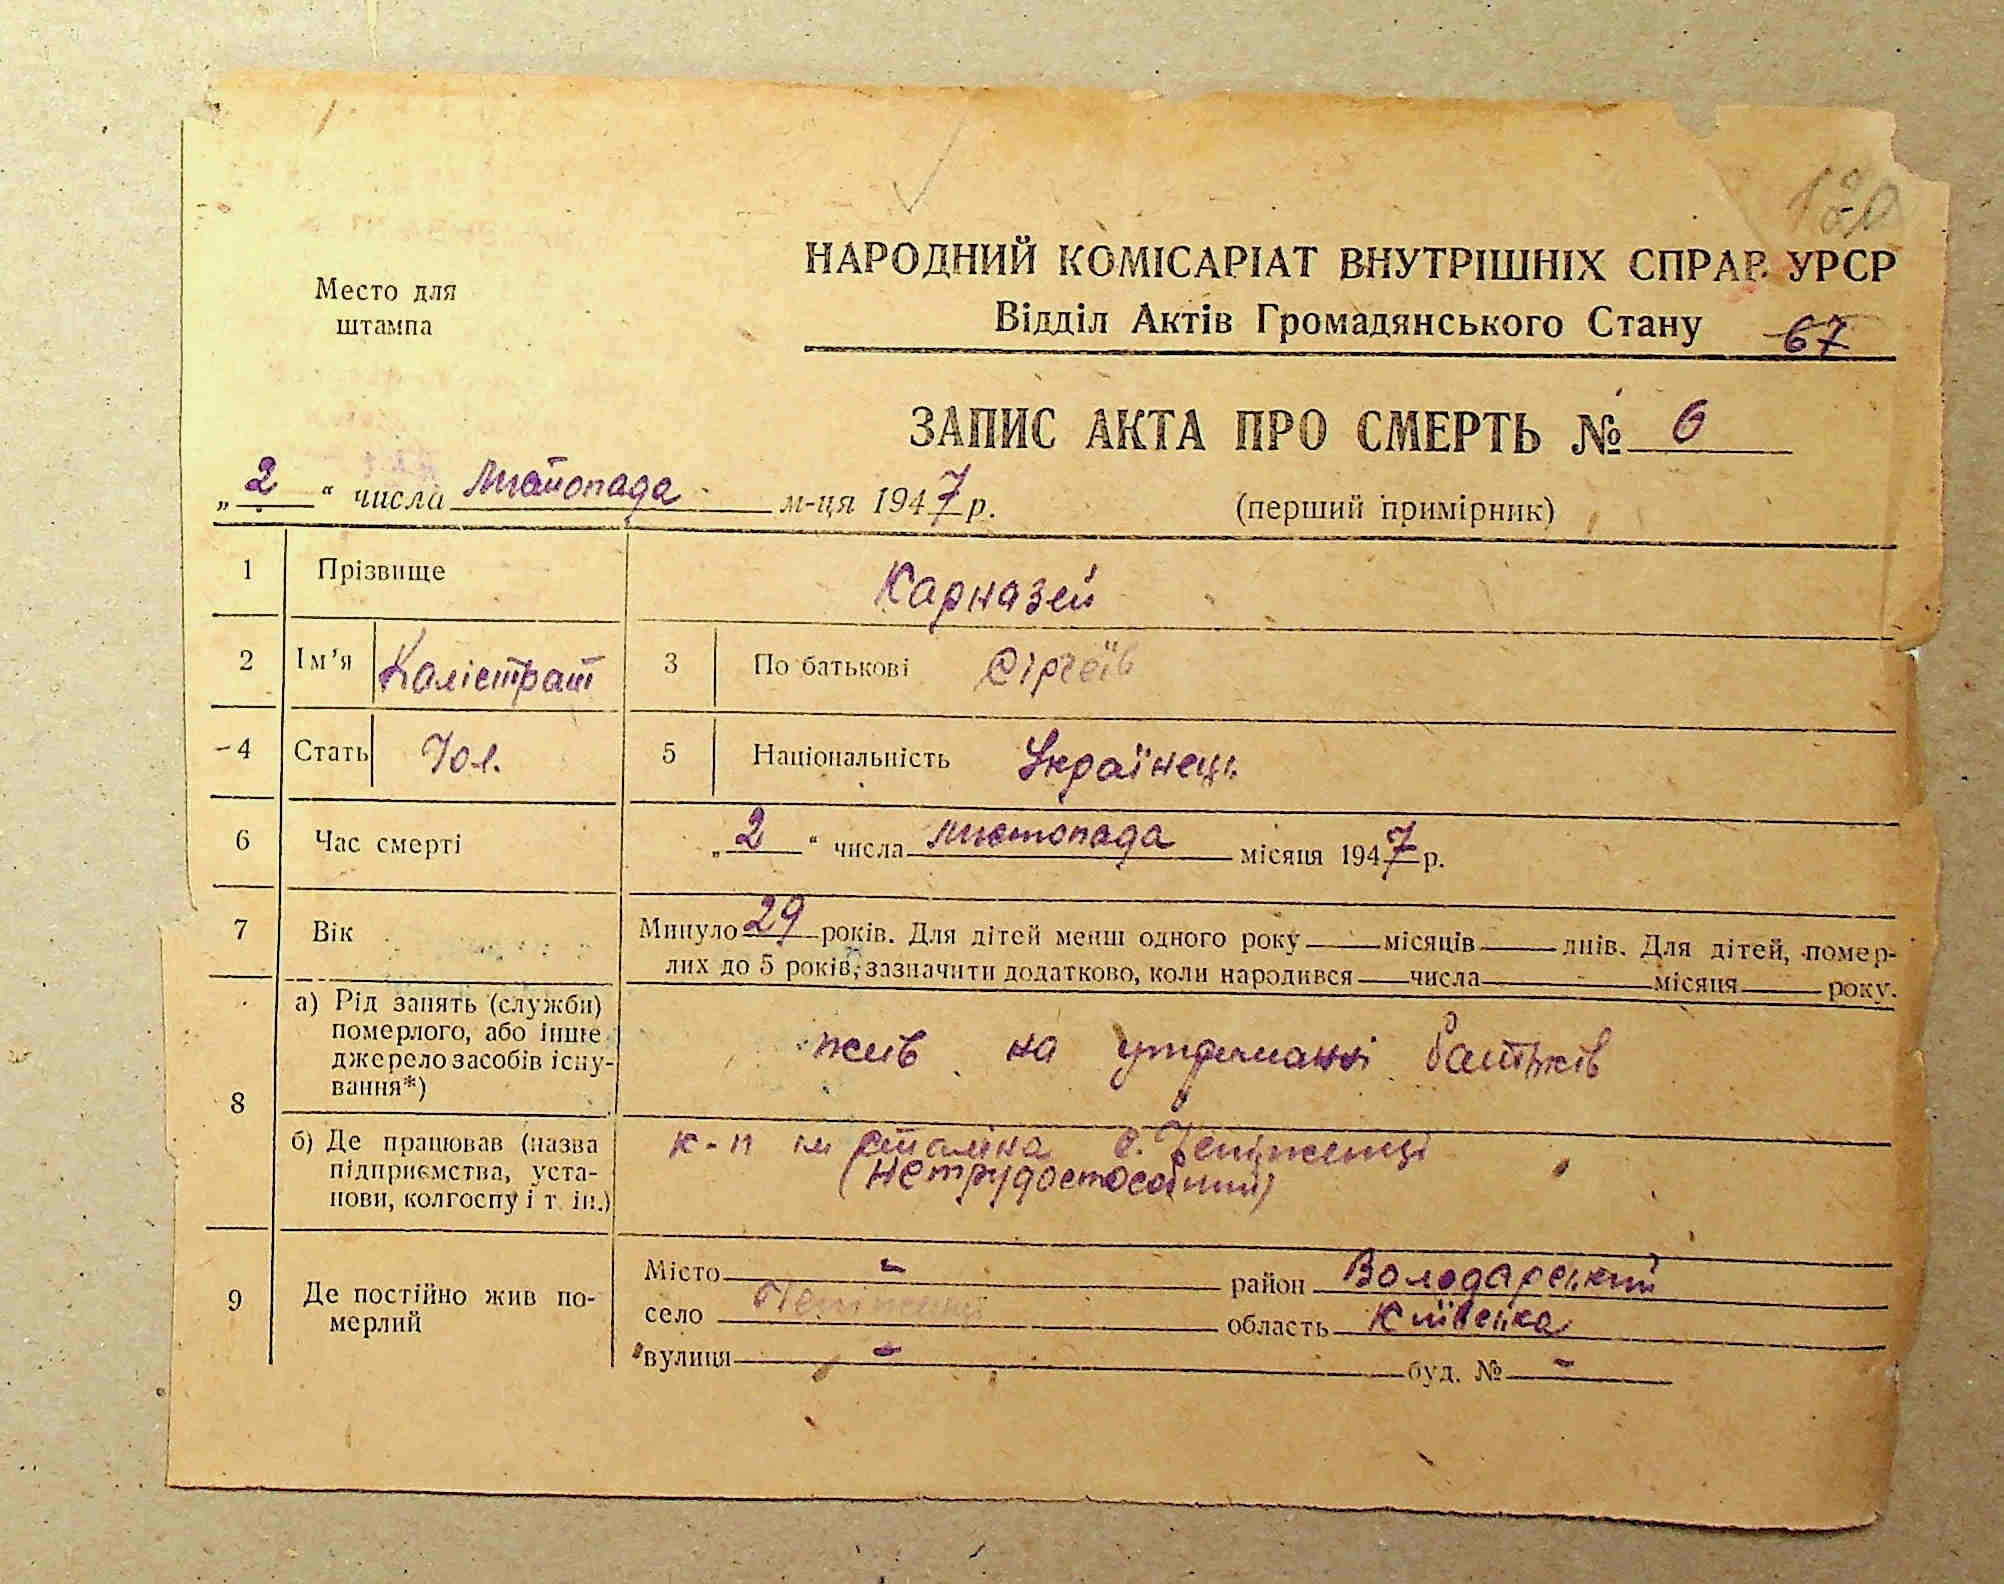 Место для
штампа
НАРОДНИЙ КОМІСАРІАТ ВНУТРІШНІХ СПРАВ УРСР
Відділ Актів Громадянського Стану 67
ЗАПИС АКТА ПРО СМЕРТЬ № 6
„2“ числа листопада м-ця 1947 р.
(перший примірник)
1 Прізвище Карназей
2 Ім'я Калістрат 3 По батькові Сіргеїв
4 Стать Чол. 5 Національність Українець
6 Час смерті „2“ числа листопада місяця 1947 р.
7 Вік Минуло 29 років. Для дітей менш одного року місяців днів. Для дітей, помер-
лих до 5 років, зазначити додатково, коли народився числа місяця року.
8 а) Рід занять (служби)
померлого, або інше
джерело засобів існу-
вання*)
жив на утриманні батьків
б) Де працював (назва
підприємства, уста-
нови, колгоспу і т. ін.)
к-п ім Сталіна с.
(нетрудоспособний)
9 Де постійно жив по-
мерлий
Місто - район Володарський
село область Київська
вулиця - буд. № -